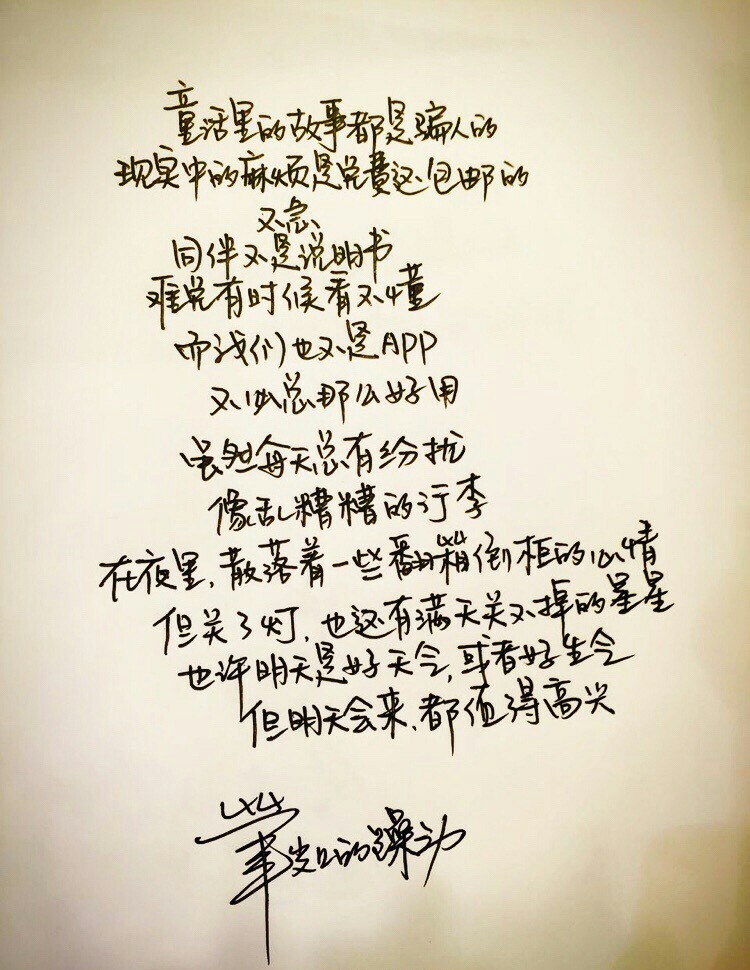 童话里的故事都是骗人的
现实中的麻烦是免费还包邮的
不急
同伴不是说明书
难免有时候看不懂
而我们也不是APP
不必总那么好用
虽然每天总有纷扰
像乱糟糟的行李
在夜里，散落着一些翻箱倒柜的心情
但关了灯，也还有满天关不掉的星星
也许明天是好天气，或者好生气
但明天会来，都值得高兴
的躁动